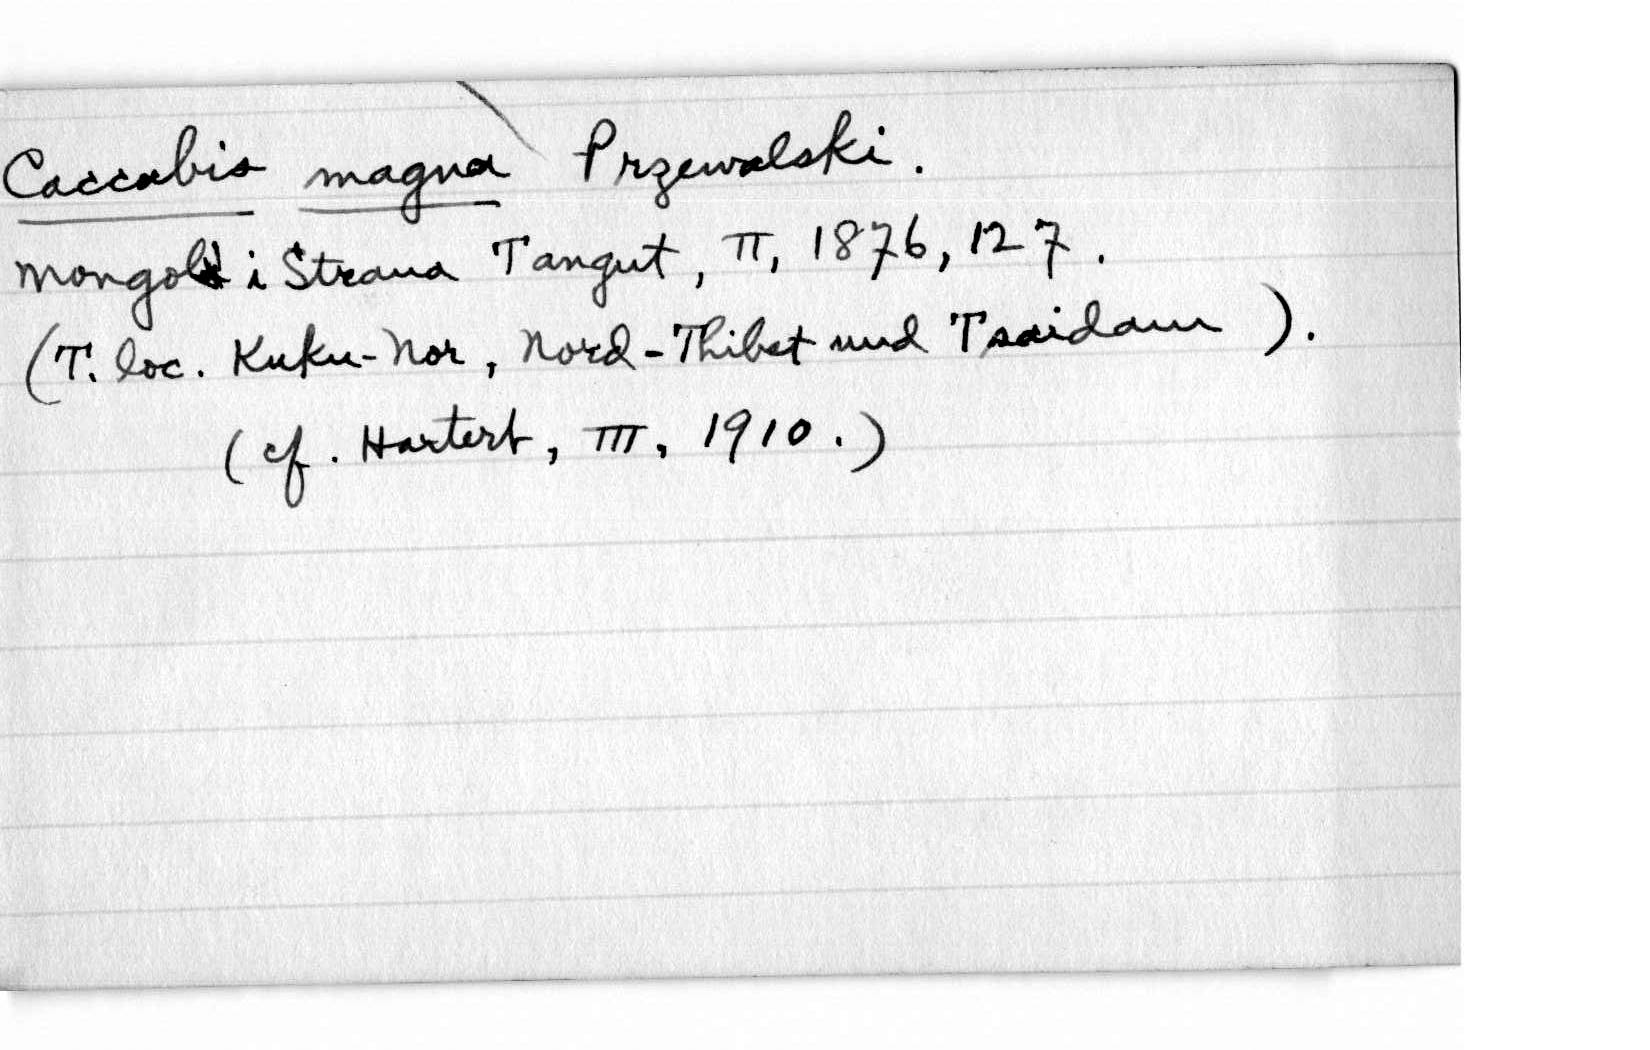 Caccabis magna Przewalski.
Mongol i Strana Tangut, II, 1876, 127.
(T. loc. Kuku-Nor, Nord-Thibet und Tsaidam).
(cf. Hartert, III, 1910.)